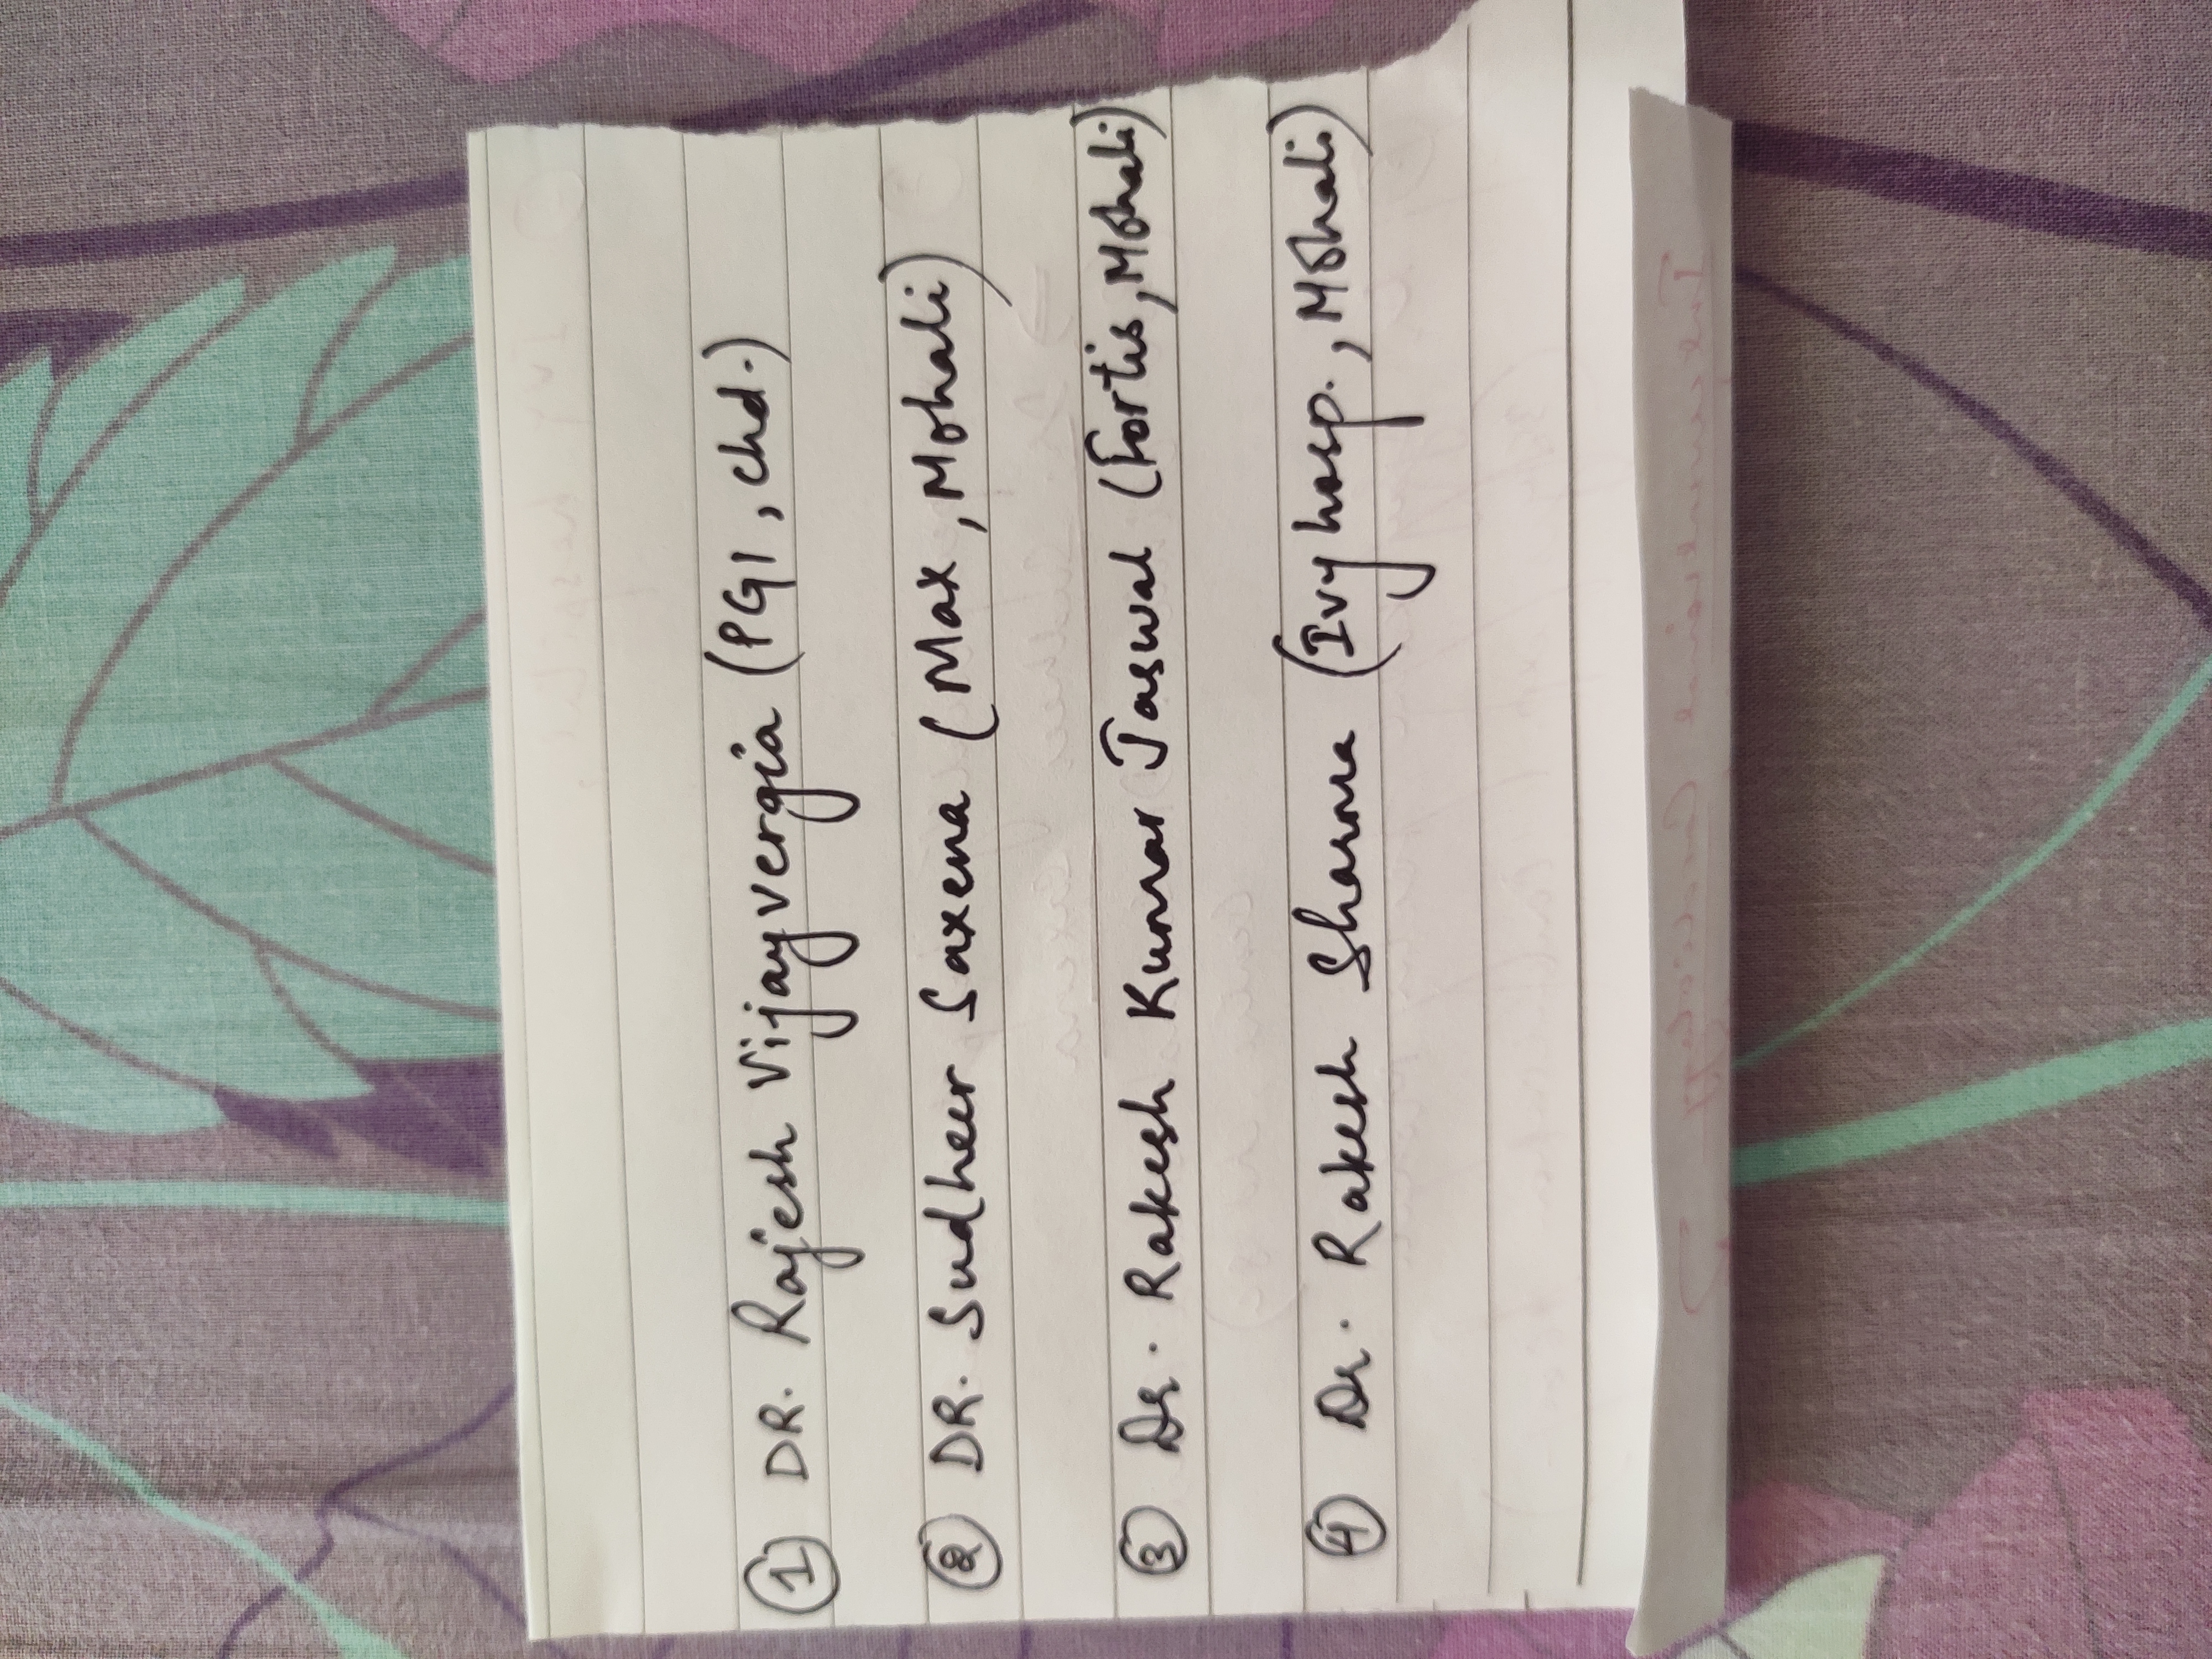 ① DR. Rajesh Vijayvergia (PGI, chd.)
② DR. Sudheer Saxena (Max, Mohali)
③ Dr. Rakesh Kumar Jaswal (Fortis, Mohali)
④ Dr. Rakesh Sharma (Ivy hosp., Mohali)